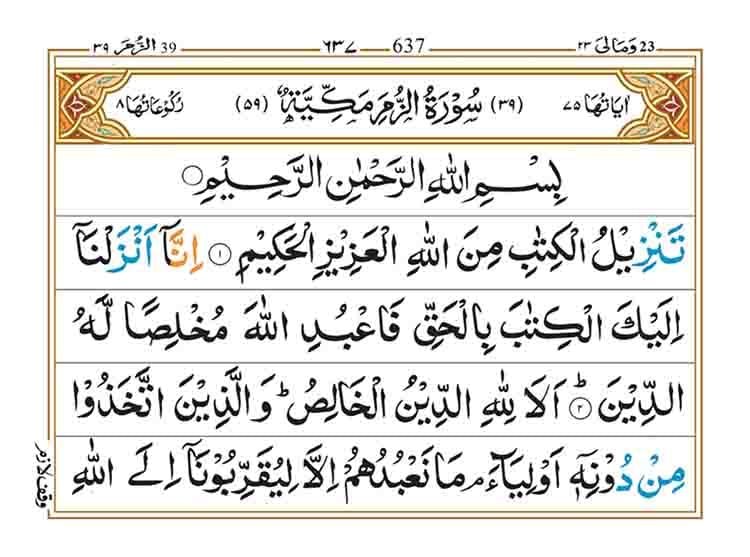 الزمر ٣٩ 39 ٦٣٧ 637 ومالی ٢٣ 23
اٰیَاتُهَا ٧٥ (٣٩) سُوْرَةُ الزُّمَرِ مَكِّيَّةٌ (٥٩) رُكُوْعَاتُهَا ٨
بِسْمِ اللّٰهِ الرَّحْمٰنِ الرَّحِيْمِ
تَنْزِيْلُ الْكِتٰبِ مِنَ اللّٰهِ الْعَزِيْزِ الْحَكِيْمِ ۝١ اِنَّاۤ اَنْزَلْنَاۤ
اِلَيْكَ الْكِتٰبَ بِالْحَقِّ فَاعْبُدِ اللّٰهَ مُخْلِصًا لَّهُ
الدِّيْنَ ۝٢ؕ اَلَا لِلّٰهِ الدِّيْنُ الْخَالِصُ ؕ وَالَّذِيْنَ اتَّخَذُوْا
مِنْ دُوْنِهٖۤ اَوْلِيَآءَ ۘ مَا نَعْبُدُهُمْ اِلَّا لِيُقَرِّبُوْنَاۤ اِلَى اللّٰهِ
وقف لازم